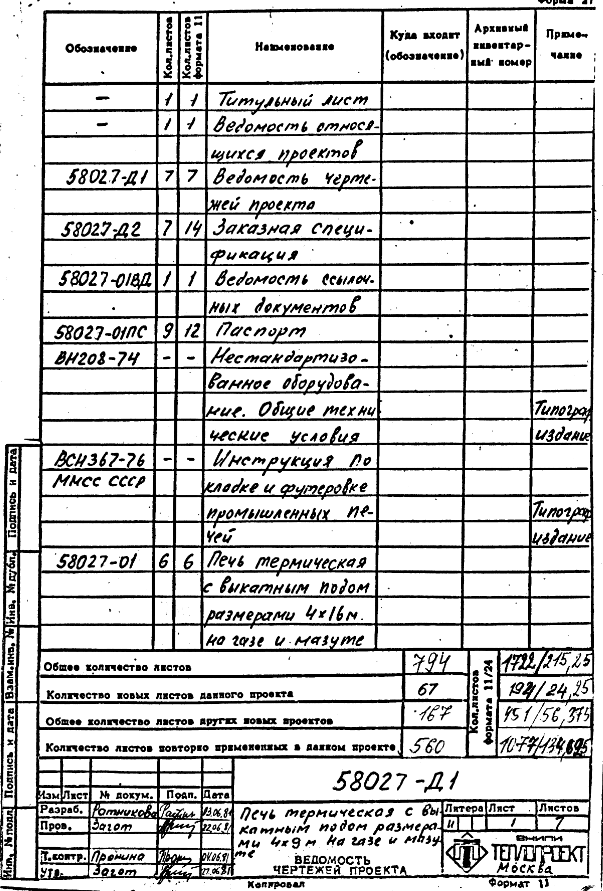 Форма 21
Обозначение Кол.листов Кол.листов формата 11 Наименование Куда входит (обозначение) Архивный инвентарный номер Примечание
– 1 1 Титульный лист
– 1 1 Ведомость относя-
щихся проектов
58027-Д1 7 7 Ведомость черте-
жей проекта
58027-Д2 7 14 Заказная специ-
фикация
58027-01ВД 1 1 Ведомость ссылоч-
ных документов
58027-01ПС 9 12 Паспорт
ВН208-74 – – Нестандартизо-
ванное оборудова-
ние. Общие техни
ческие условия
Типограф
издание
ВСН367-76 – – Инструкция по
ММСС СССР кладке и футеровке
промышленных пе-
чей
Типограф
издание
58027-01 6 6 Печь термическая
с выкатным подом
размерами 4х16м.
на газе и мазуте
Общее количество листов 794 1722/215,25
Количество новых листов данного проекта 67
Общее количество листов других новых проектов 167
Количество листов повторно примененных в данном проекте 560
Кол.листов формата 11/24
58027-Д1
Изм Лист № докум. Подп. Дата
Разраб. Ратникова
Пров. Загот
Т.контр. Пронина
Утв. Загот
Печь термическая с вы
катным подом размера-
ми 4х9м на газе и мазу-
те
ВЕДОМОСТЬ
ЧЕРТЕЖЕЙ ПРОЕКТА
Литера Лист Листов
И 1 7
ВНИПИ
ТЕПЛОПРОЕКТ
Москва
Копировал Формат 11
Подпись и дата
Инв. № дубл.
Взам.инв. №
Подпись и дата
Инв. № подл